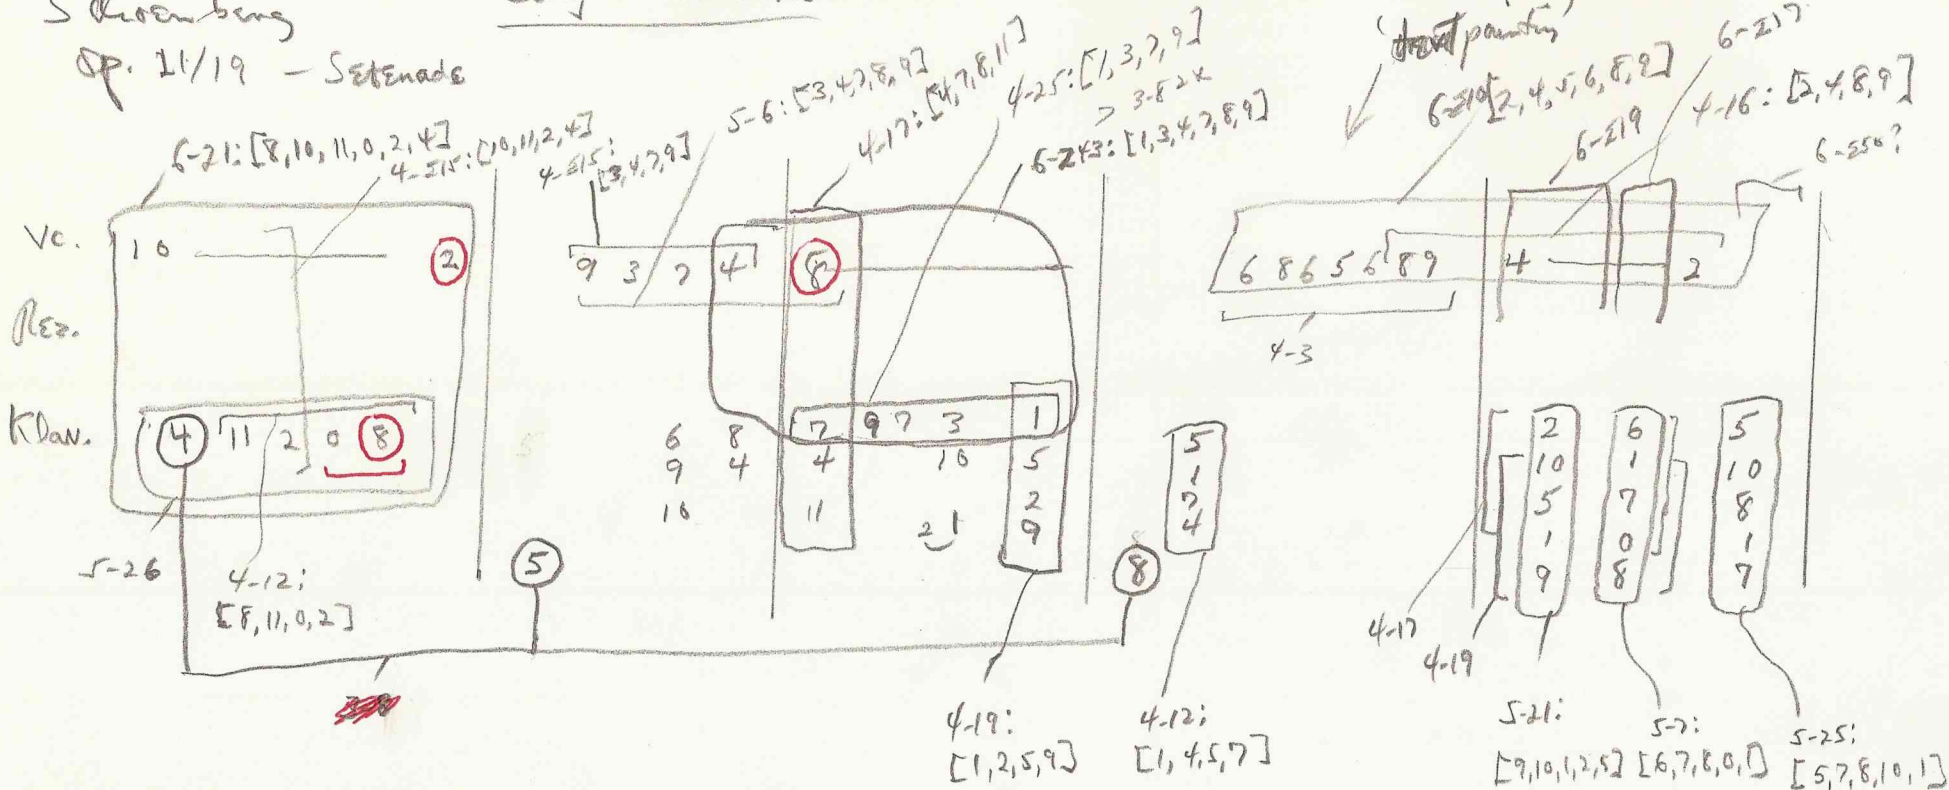 Schoenberg
Op. 21/19 - Serenade
6-21: [8,10,11,0,2,4]
4-Z15: [10,11,2,4]
4-Z15: [3,4,7,9]
5-6: [3,4,7,8,9]
4-17: [4,7,8,11]
4-25: [1,3,7,9]
> 3-8 2x
6-Z43: [1,3,4,7,8,9]
painting'
6-Z10 [2,4,5,6,8,9]
6-Z19
6-Z17
4-16: [2,4,8,9]
6-Z50?
Vc. 10 2 9 3 7 4 8 6 8 6 5 6 8 9 4 2
Rez.
4-3
Klav. 4 11 2 0 8
6 8 7 9 7 3 1
9 4 4 10 5
10 11 2 1 2
9
5
1
7
4
2 6 5
10 1 10
5 7 8
1 0 1
9 8 7
5 8
5-26
4-12:
[8,11,0,2]
4-19:
[1,2,5,9]
4-12:
[1,4,5,7]
4-17
4-19
5-21:
[9,10,1,2,5]
5-7:
[6,7,8,0,1]
5-25:
[5,7,8,10,1]